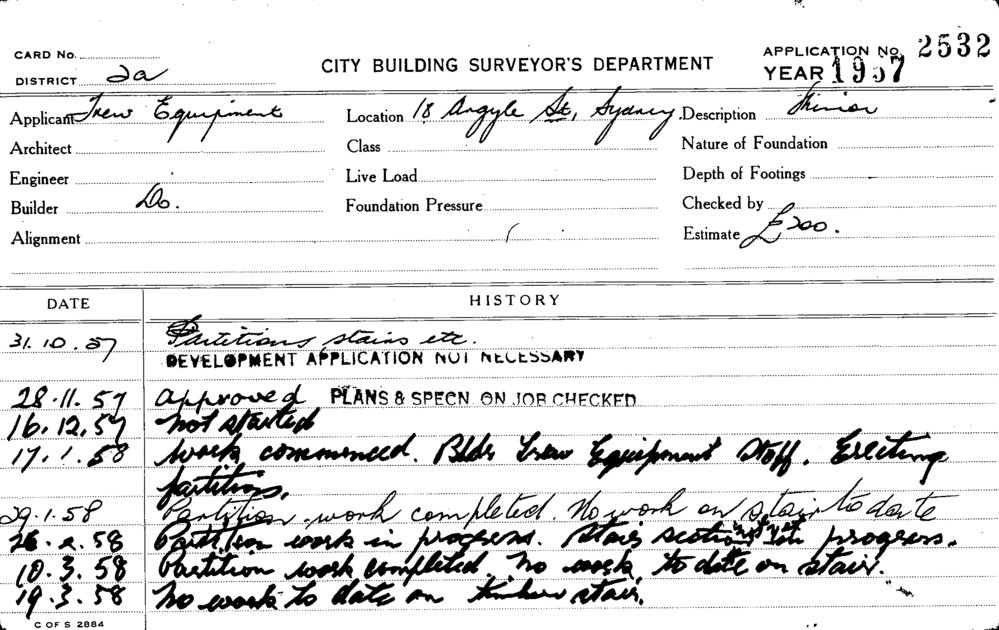 CARD No.
DISTRICT 2a
CITY BUILDING SURVEYOR'S DEPARTMENT
APPLICATION No. 2532
YEAR 1957
Applicant Trew Equipment Location 18 Argyle St, Sydney. Description Minor
Architect Class Nature of Foundation
Engineer Live Load Depth of Footings
Builder Do. Foundation Pressure Checked by
Alignment Estimate £200.
DATE HISTORY
31.10.57 Partitions, stairs etc.
DEVELOPMENT APPLICATION NOT NECESSARY
28.11.57 approved PLANS & SPECN. ON JOB CHECKED
16.12.57 not started
17.1.58 work commenced. Bldr Trew Equipment Staff. Erecting
partitions.
29.1.58 Partition work completed. No work on stair to date
26.2.58 Partition work in progress. Stairs section in progress.
10.3.58 Partition work completed. No work to date on stair.
19.3.58 No work to date on timber stair.
C OF S 2884